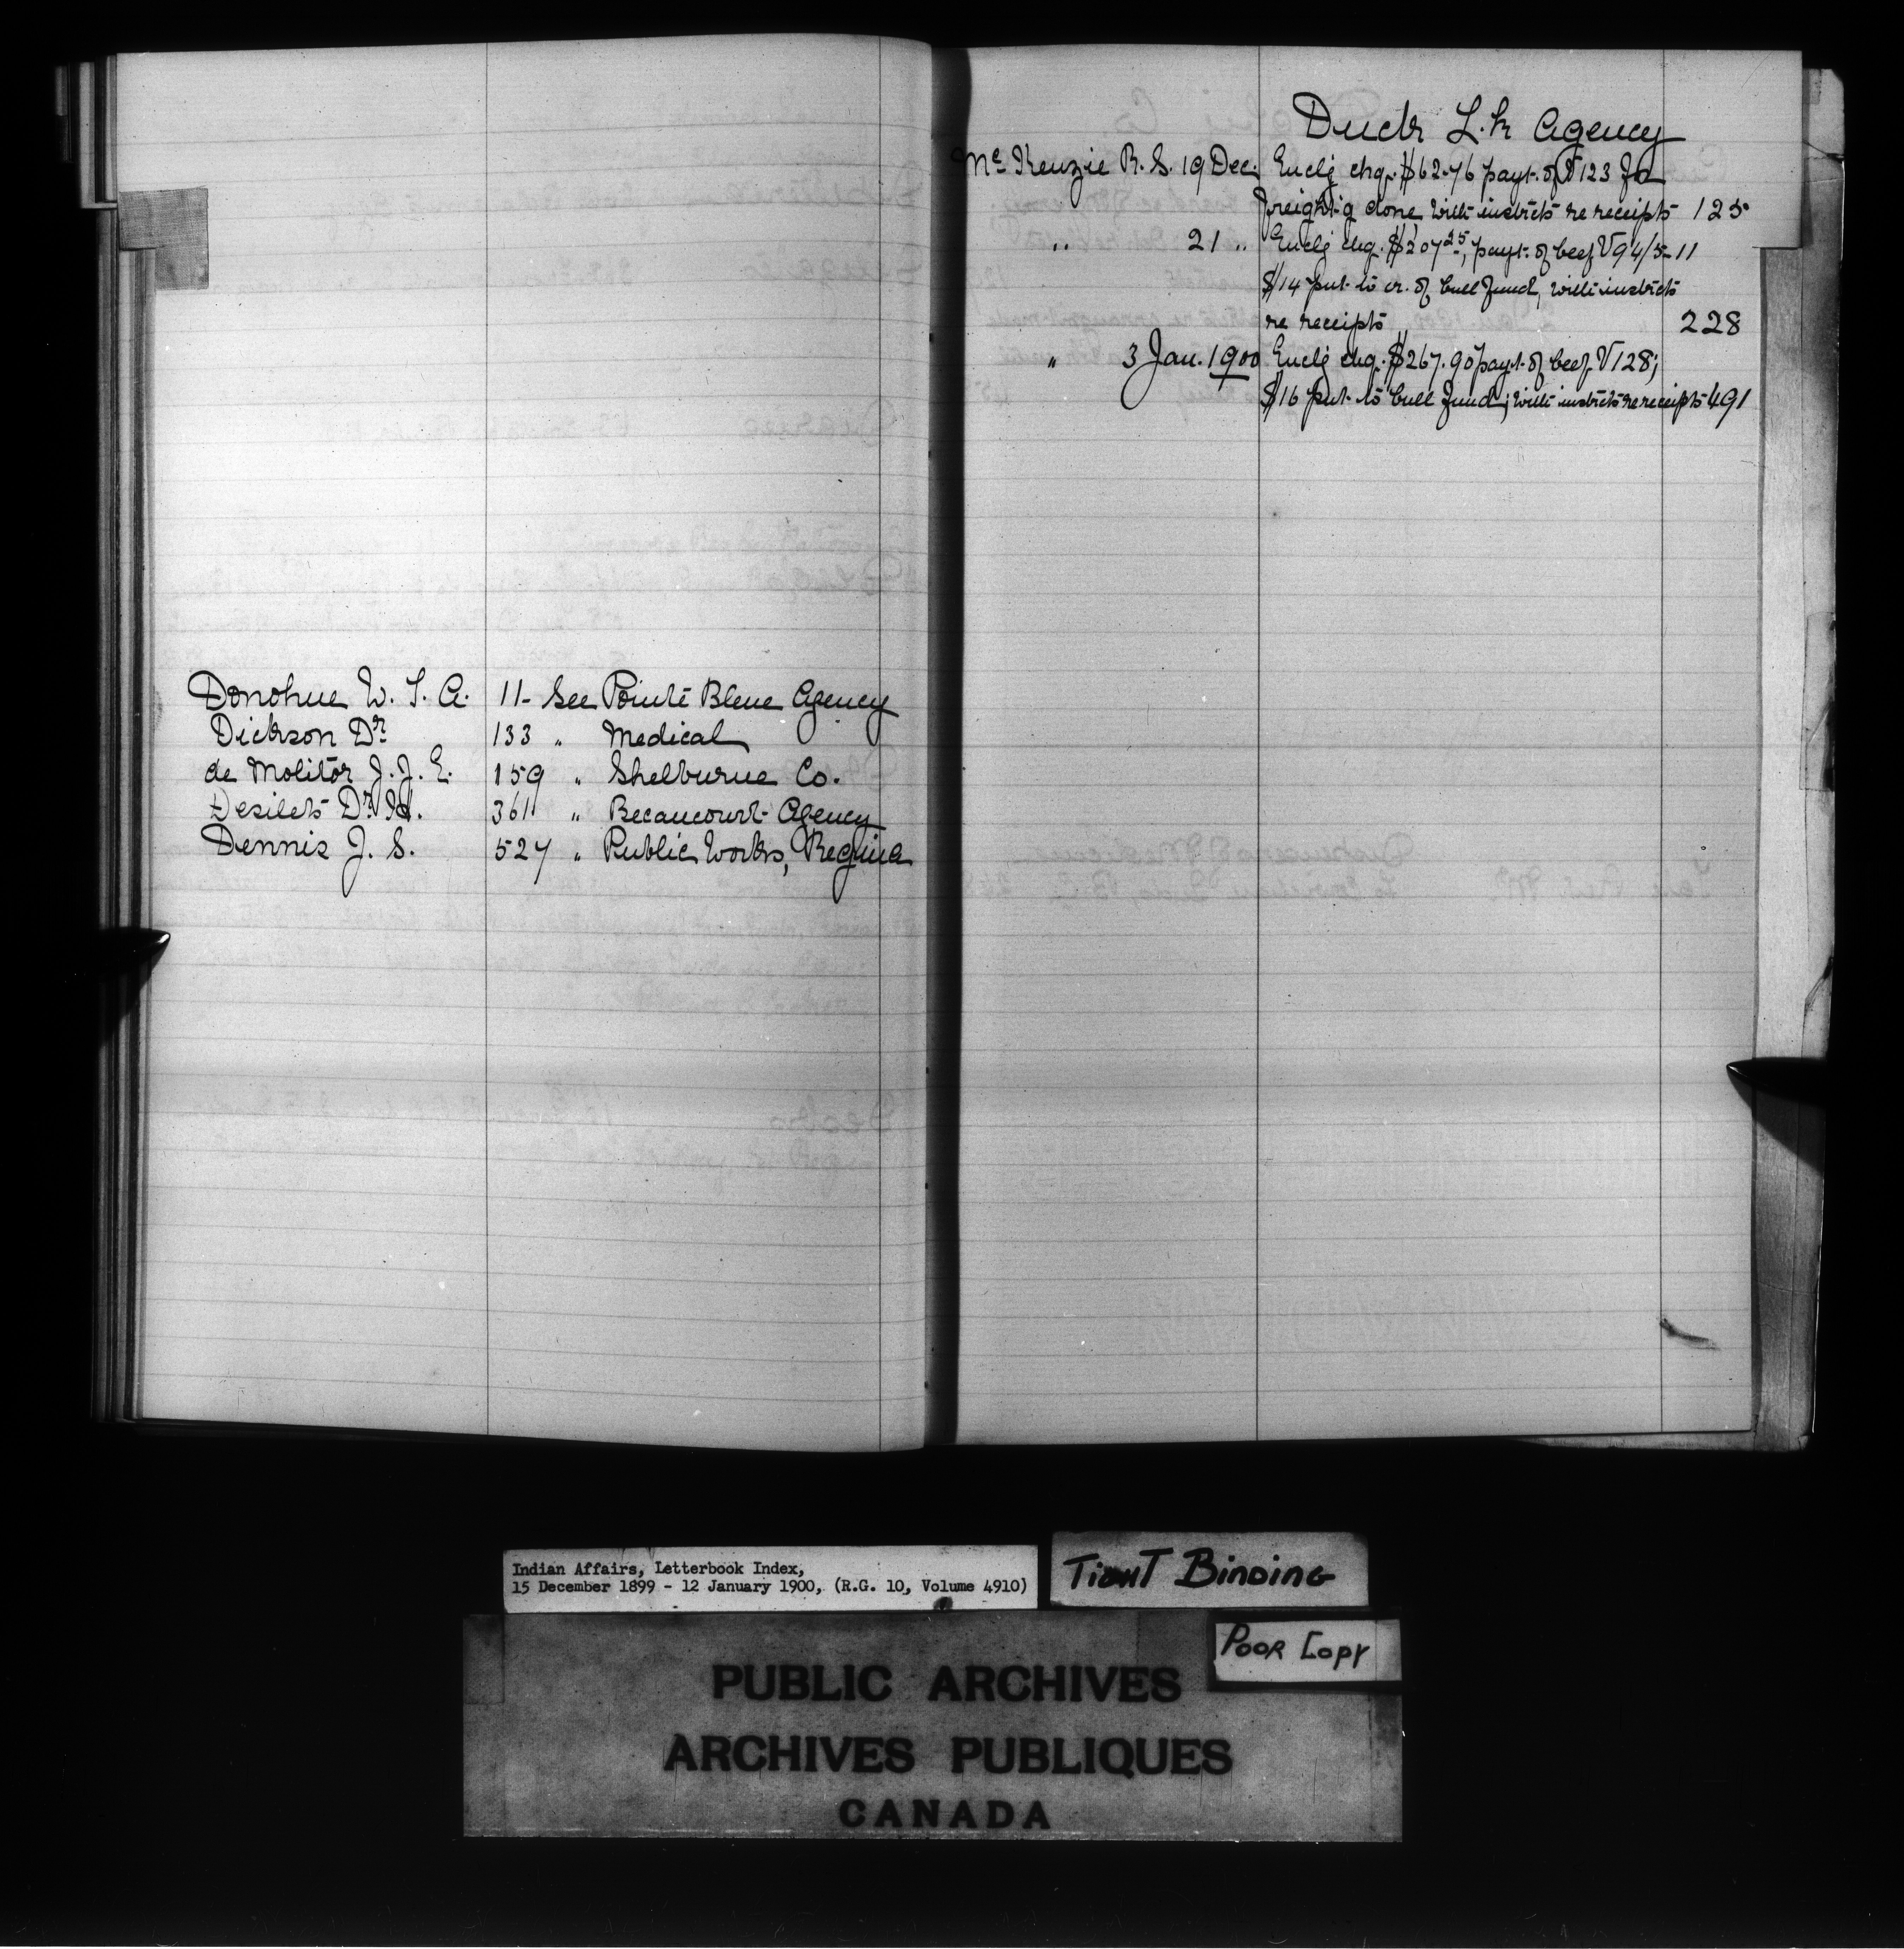 Donohue W. T. A. 11- See Pointe Bleue Agency
Dickson Dr. 133 " Medical
de Molitor J. J. E. 159 " Shelburne Co.
Desilets Dr. 361 " Becancourt Agency
Dennis J. S. 527 " Public Works, Regina
Duck L.k Agency
Mc Kenzie R. S. 19 Dec. Enclg chq. $62.76 payt. of V 123 for
freight'g done, with instrcts re receipts 125
" 21 " Enclg chq. $207.25, payt. of beef V 94/5- 11
$14 put to cr. of bull fund, with instrcts
re receipts 228
" 3 Jan. 1900 Enclg chq. $267.90 payt. of beef V 128;
$16 put to bull fund; with instrcts re receipts 491
Indian Affairs, Letterbook Index,
15 December 1899 - 12 January 1900, (R.G. 10, Volume 4910)
TIGHT BINDING
POOR COPY
PUBLIC ARCHIVES
ARCHIVES PUBLIQUES
CANADA